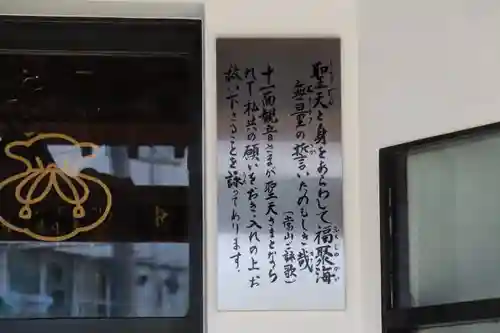 聖天と身をあらわして福聚海
無量の誓いたのもしき哉
(当山ご詠歌)
十一面観音さまが聖天さまとなら
れて私共の願いをお聞き入れの上お
救い下さることを詠っております。